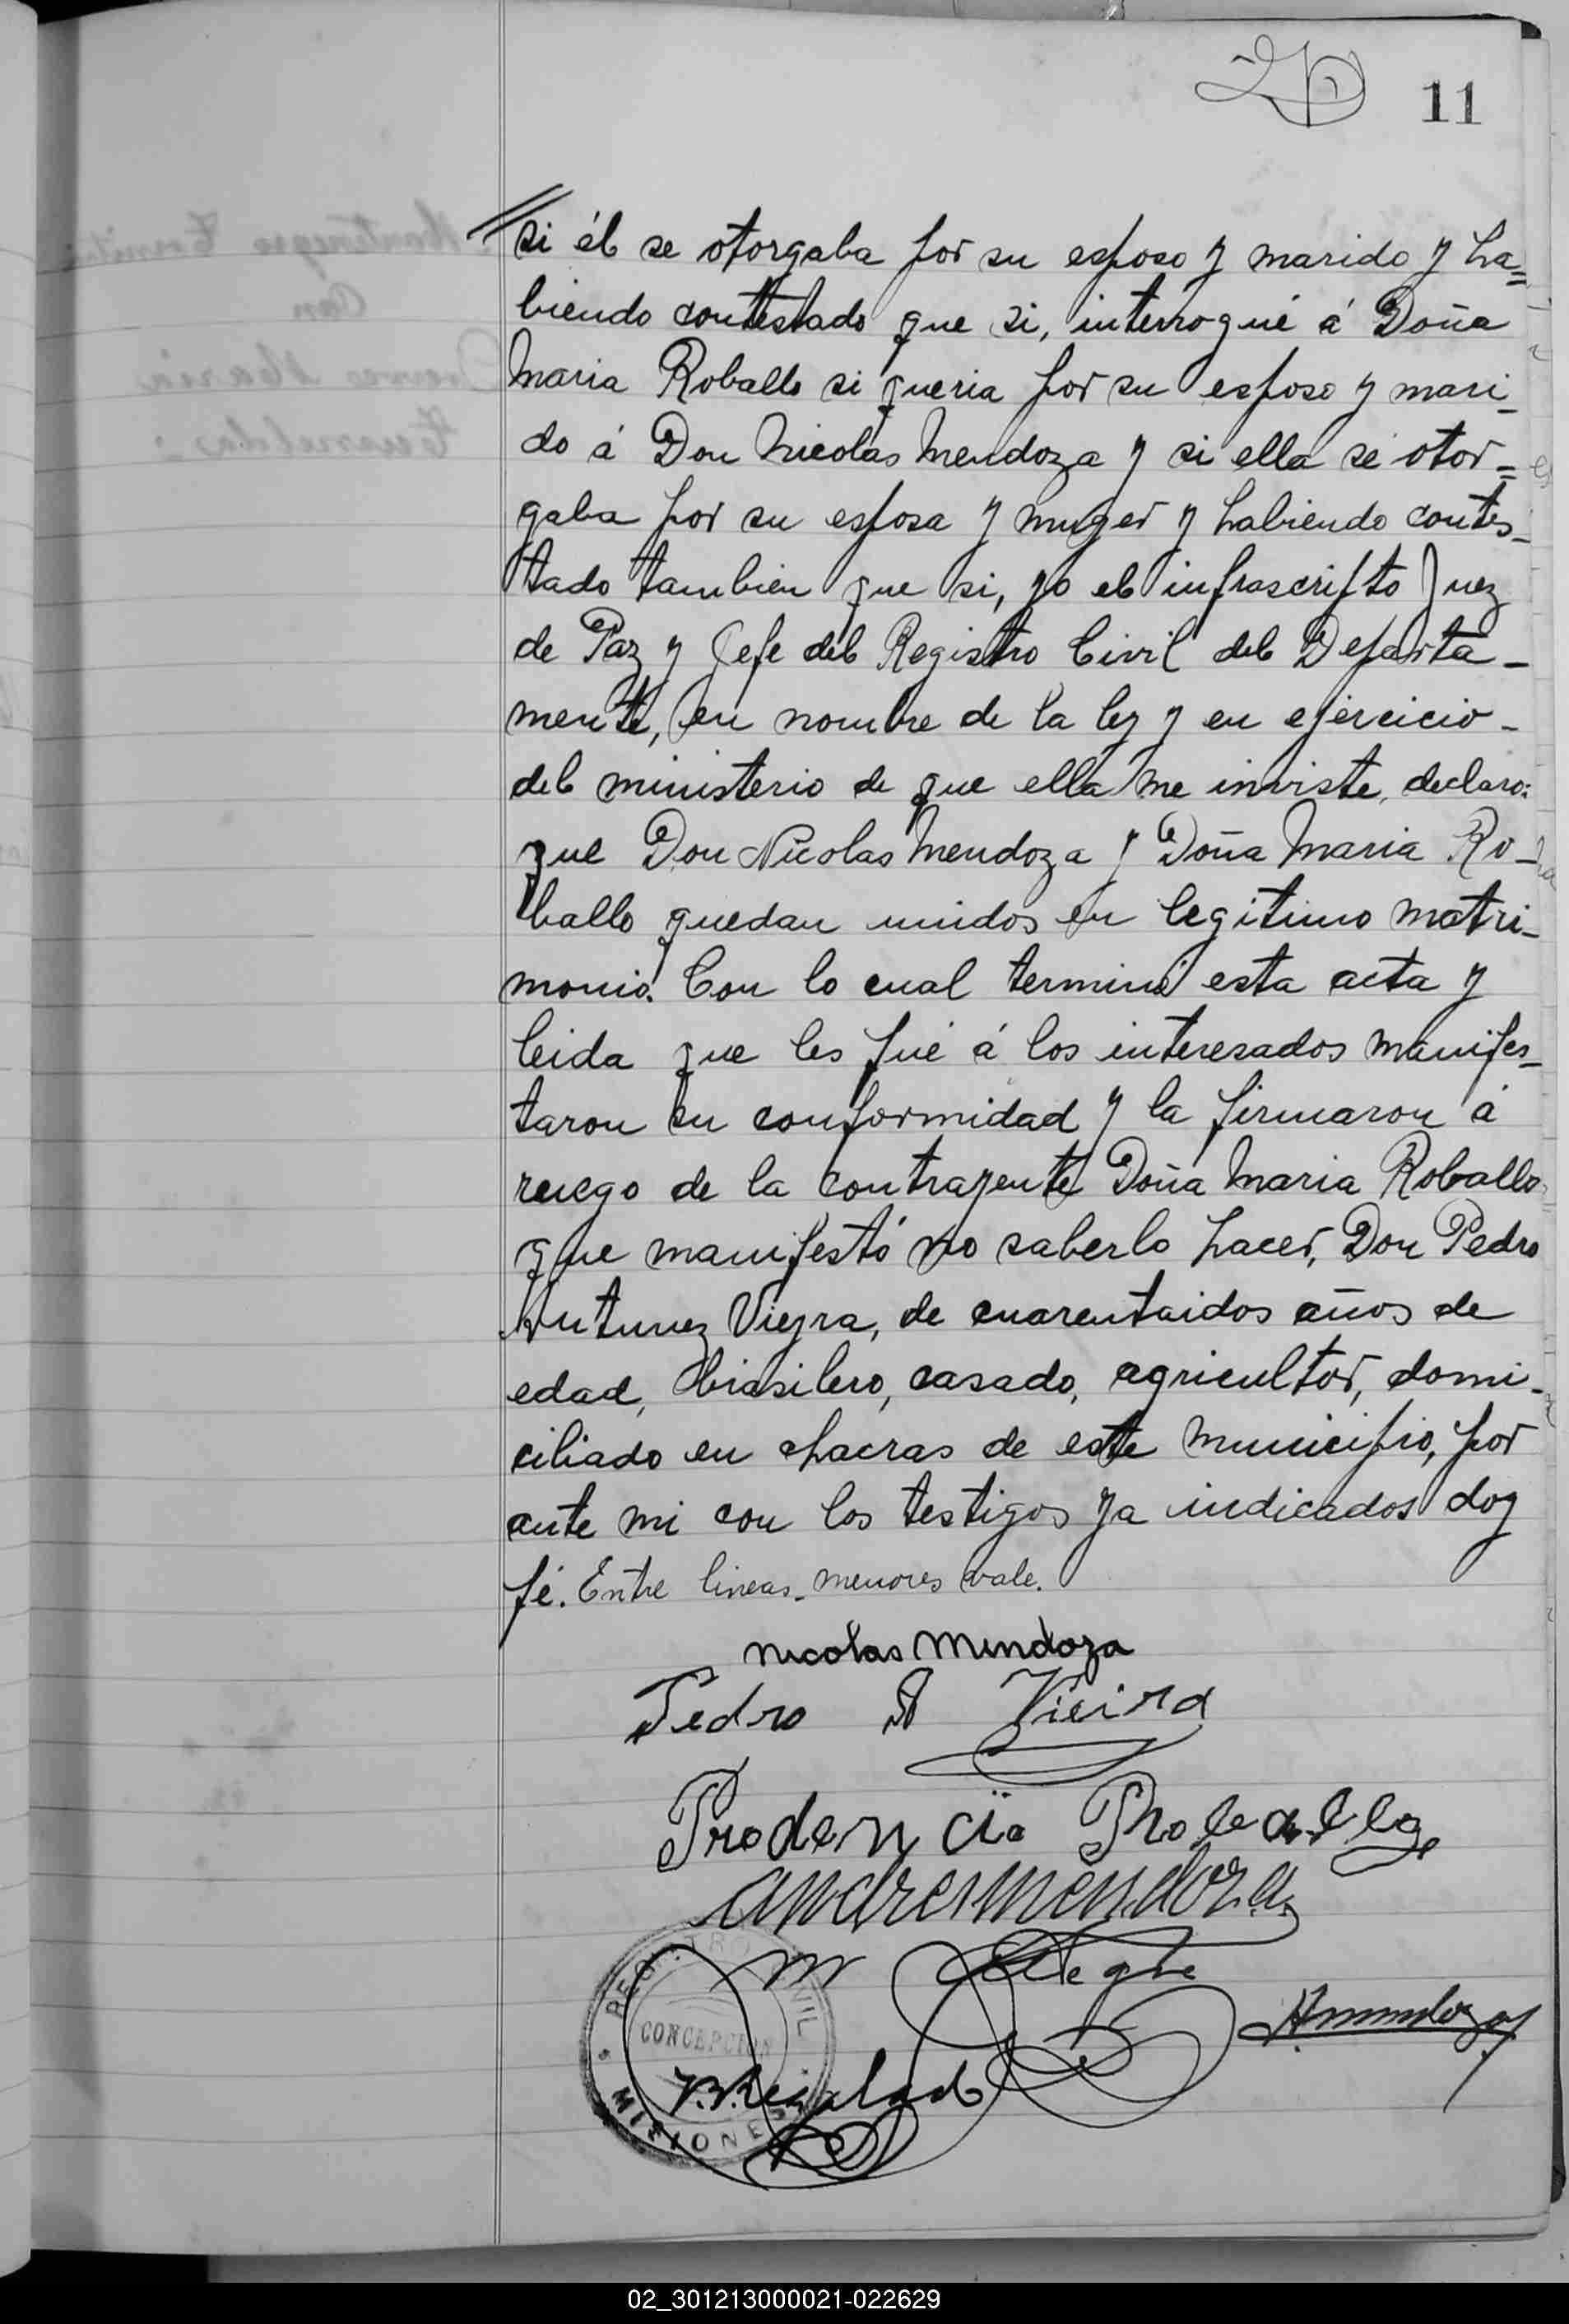 11
si él se otorgaba por su esposo y marido y ha=
biendo contestado que si, interrogué á Doña
Maria Roballo si queria por su esposo y mari_
do á Don Nicolas Mendoza y si ella se otor=
gaba por su esposa y muger y habiendo contes_
tado tambien que si, yo el infrascripto Juez
de Paz y Jefe del Registro Civil del Departa_
mento, en nombre de la ley y en ejercicio_
del ministerio de que ella me inviste, declaro:
que Don Nicolas Mendoza y Doña Maria Ro_
ballo quedan unidos en legitimo matri_
monio. Con lo cual terminó esta acta y
leida que les fué á los interesados manifes_
taron su conformidad y la firmaron á
ruego de la contrayente Doña Maria Roballo
que manifestó no saberlo hacer, Don Pedro
Antunez Vieyra, de cuarentaidos años de
edad, brasilero, casado, agricultor, domi_
ciliado en chacras de este municipio, por
ante mi con los testigos ya indicados doy
fé. Entre lineas_menores vale.
nicolas Mendoza
Pedro A Vieira
Prodencia Roballo
andres mendoza
REGISTRO CIVIL
CONCEPCION
MISIONES
02_301213000021-022629